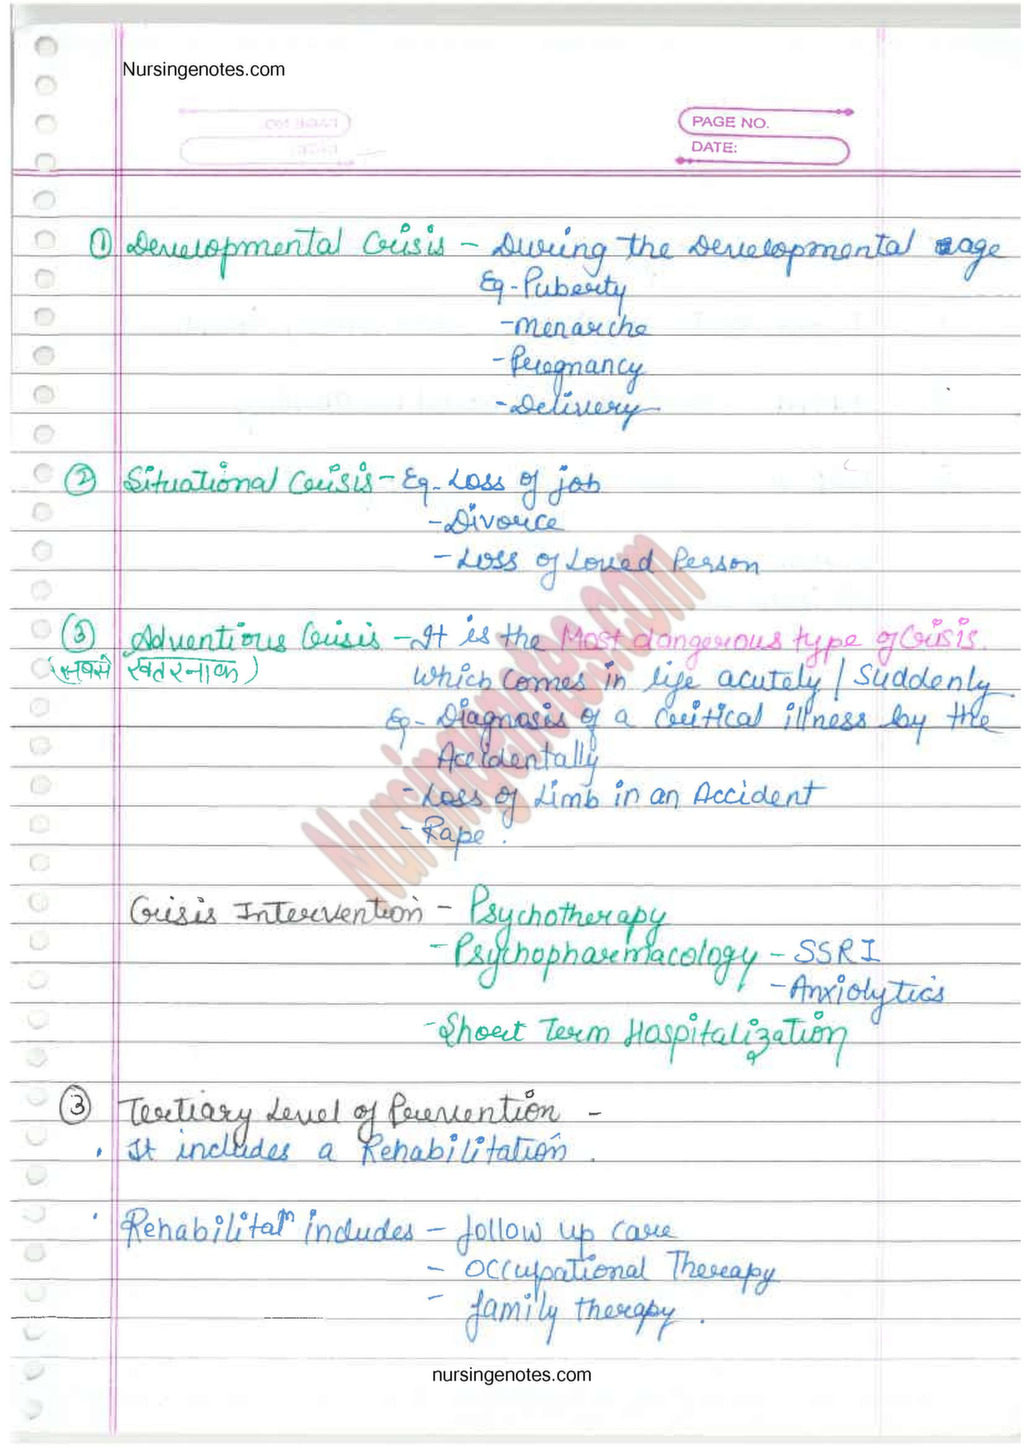 Nursingenotes.com
PAGE NO.
DATE:
① Developmental Crisis - During the Developmental age
Eg - Puberty
- Menarche
- Pregnancy
- Delivery
② Situational Crisis - Eg - Loss of job
- Divorce
- Loss of Loved Person
③ Adventious Crisis - It is the Most dangerous type of Crisis.
(सबसे खतरनाक) Which comes in life acutely / Suddenly
Eg - Diagnosis of a critical illness by the
Accidentally
- Loss of Limb in an Accident
- Rape.
Nursingenotes.com
Crisis Intervention - Psychotherapy
- Psychopharmacology - SSRI
- Anxiolytics
- Short Term Hospitalization
③ Tertiary Level of Prevention -
• It includes a Rehabilitation.
• Rehabilitaⁿ includes - follow up care
- Occupational Therapy
- family therapy.
nursingenotes.com